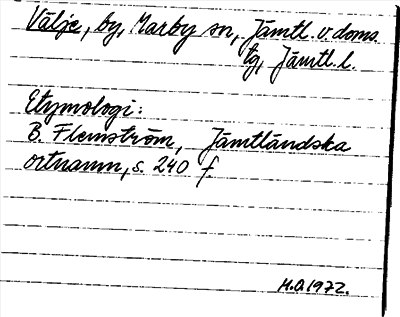 Välje, by, Marby sn, Jämtl. v. doms.
tg, Jämtl. l.
Etymologi:
B. Flemström, Jämtländska
ortnamn, s. 240 f
M.O. 1972.